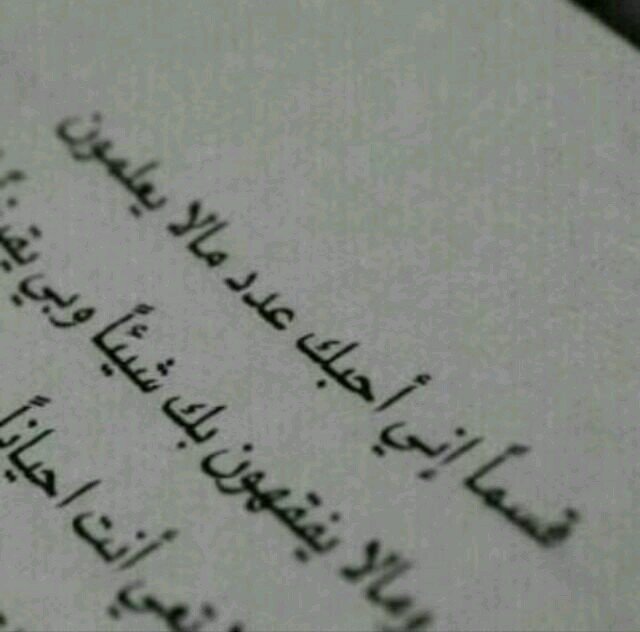 قسماً إني أحبك عدد مالا يعلمون
ومالا يفقهون بك شيئاً وبي
تعي أنت احياناً